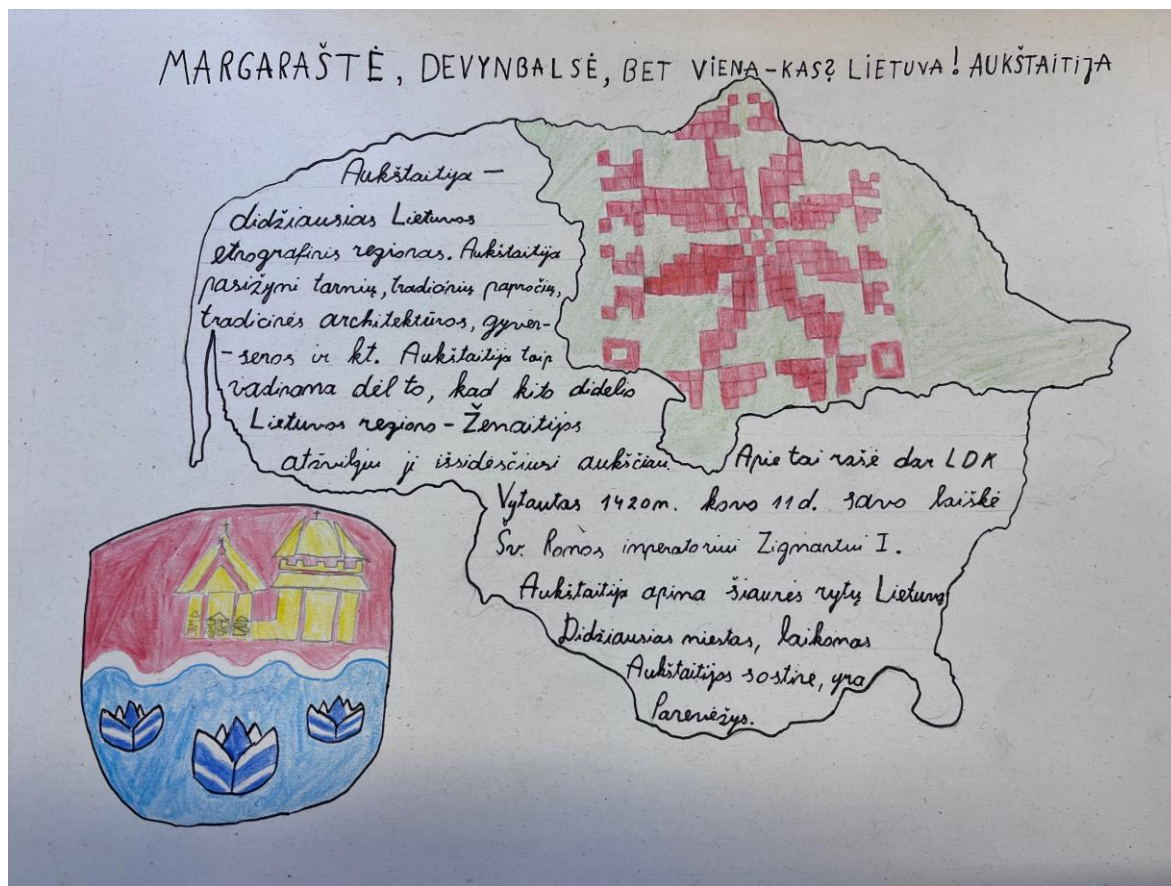 MARGARAŠTĖ, DEVYNBALSĖ, BET VIENA-KAS? LIETUVA! AUKŠTAITIJA
Aukštaitija –
didžiausias Lietuvos
etnografinis regionas. Aukštaitija
pasižymi tarmių, tradicinių papročių,
tradicinės architektūros, gyven-
-senos ir kt. Aukštaitija taip
vadinama dėl to, kad kito didelio
Lietuvos regiono – Žemaitijos
atžvilgiu ji išsidėsčiusi aukščiau.
Apie tai rašė dar LDK
Vytautas 1420m. kovo 11 d. savo laiške
Šv. Romos imperatoriui Zigmantui I.
Aukštaitija apima šiaurės rytų Lietuvą
Didžiausias miestas, laikomas
Aukštaitijos sostine, yra
Panevėžys.